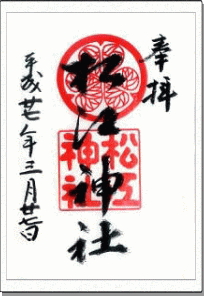 奉拝
松江神社
松江神社
平成廿七年三月廿一日